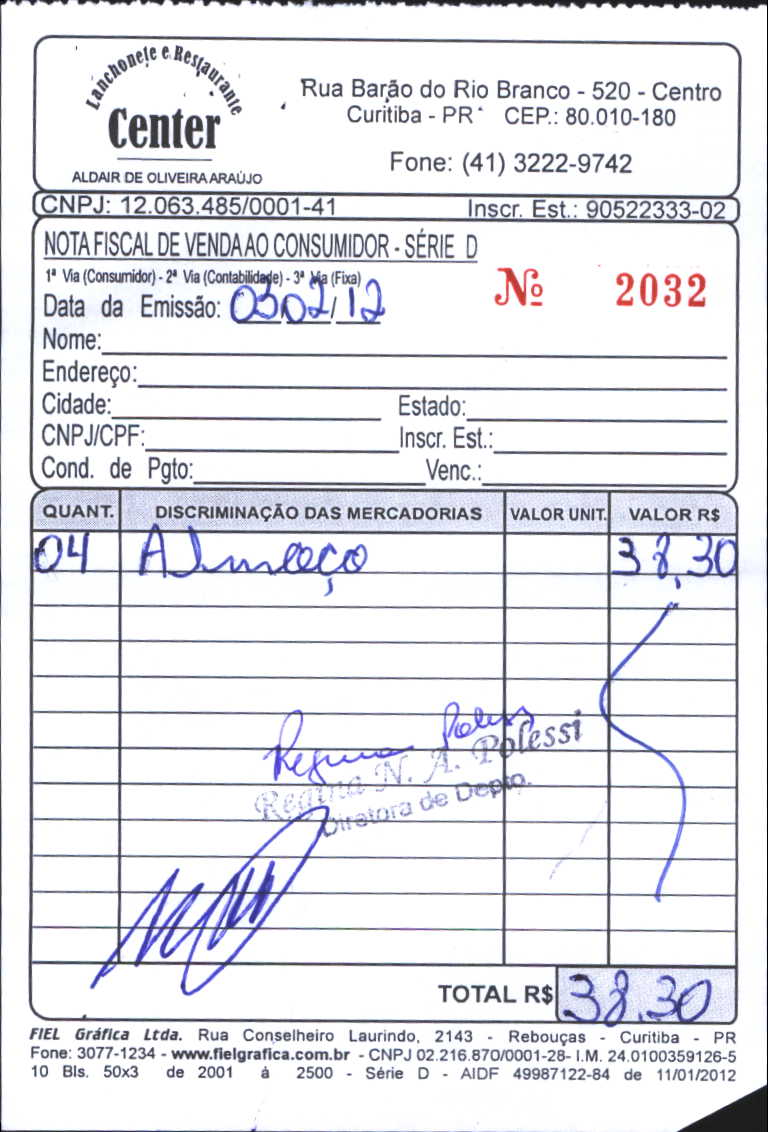 Lanchonete e Restaurante
Center
ALDAIR DE OLIVEIRA ARAÚJO
Rua Barão do Rio Branco - 520 - Centro
Curitiba - PR CEP.: 80.010-180
Fone: (41) 3222-9742
CNPJ: 12.063.485/0001-41 Inscr. Est.: 90522333-02
NOTA FISCAL DE VENDA AO CONSUMIDOR - SÉRIE D
1ª Via (Consumidor) - 2ª Via (Contabilidade) - 3ª Via (Fixa)
Nº 2032
Data da Emissão: 03/02/12
Nome:
Endereço:
Cidade: Estado:
CNPJ/CPF: Inscr. Est.:
Cond. de Pgto: Venc.:
QUANT. DISCRIMINAÇÃO DAS MERCADORIAS VALOR UNIT. VALOR R$
04 Almoço 38,30
Regina Polessi
Regina N. A. Polessi
Diretora de Depto.
TOTAL R$ 38.30
FIEL Gráfica Ltda. Rua Conselheiro Laurindo, 2143 - Rebouças - Curitiba - PR
Fone: 3077-1234 - www.fielgrafica.com.br - CNPJ 02.216.870/0001-28- I.M. 24.0100359126-5
10 Bls. 50x3 de 2001 á 2500 - Série D - AIDF 49987122-84 de 11/01/2012